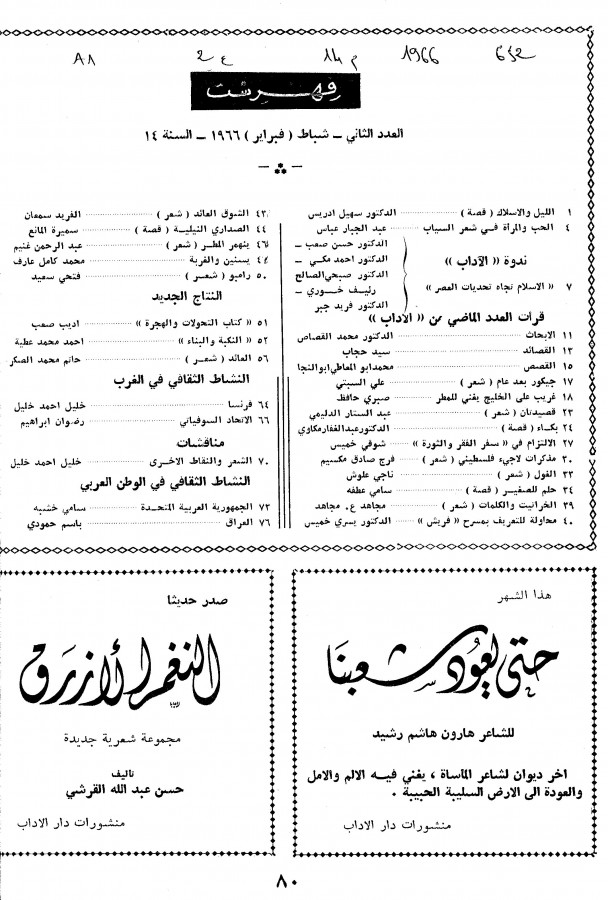 A1 2ع م14 1966 632
فهرست
العدد الثاني - شباط ( فبراير ) ١٩٦٦ - السنة ١٤
١ الليل والاسلاك ( قصة ) الدكتور سهيل ادريس
٤ الحب والمرأة في شعر السياب عبد الجبار عباس
ندوة « الآداب »
٧ « الاسلام تجاه تحديات العصر »
الدكتور حسن صعب -
الدكتور احمد مكي -
الدكتور صبحي الصالح
رئيف خوري -
الدكتور فريد جبر
قرات العدد الماضي من « الآداب »
١١ الابحاث الدكتور محمد القصاص
١٣ القصائد سيد حجاب
١٥ القصص محمد ابو المعاطي ابو النجا
١٧ جيكور بعد عام ( شعر ) علي السبتي
١٨ غريب على الخليج يغني للمطر صبري حافظ
٢٣ قصيدتان ( شعر ) عبد الستار الدليمي
٢٤ بكاء ( قصة ) الدكتور عبدالغفار مكاوي
٢٧ الالتزام في « سفر الفقر والثورة » شوقي خميس
٣٠ مذكرات لاجىء فلسطيني ( شعر ) فرج صادق مكسيم
٣٣ الغول ( شعر ) ناجي علوش
٣٤ حلم للصغير ( قصة ) سامي عطفه
٣٩ الخرانيت والكلمات ( شعر ) مجاهد ع. مجاهد
٤٠ محاولة للتعريف بمسرح « فريش » الدكتور يسري خميس
٤٣ الشوق العائد ( شعر ) الفريد سمعان
٤٤ الصداري النيلية ( قصة ) سميرة المانع
٤٦ ينهمر المطر ( شعر ) عبد الرحمن غنيم
٤٧ يسنين والغربة محمد كامل عارف
٥٠ رامبو ( شعر ) فتحي سعيد
النتاج الجديد
٥١ « كتاب التحولات والهجرة » اديب صعب
٥٢ « النكبة والبناء » احمد محمد عطية
٥٦ العائد ( شعر ) حاتم محمد الصكر
النشاط الثقافي في الغرب
٦٤ فرنسا خليل احمد خليل
٦٦ الاتحاد السوفياتي رضوان ابراهيم
مناقشات
٧٠ الشعر والنقاط الاخرى خليل احمد خليل
النشاط الثقافي في الوطن العربي
٧٣ الجمهورية العربية المتحدة سامي خشبه
٧٦ العراق باسم حمودي
هذا الشهر
حتى يعود شعبنا
للشاعر هارون هاشم رشيد
اخر ديوان لشاعر الماساة ، يغني فيه الالم والامل
والعودة الى الارض السليبة الحبيبة .
منشورات دار الاداب
صدر حديثا
النغم الأزرق
مجموعة شعرية جديدة
تاليف
حسن عبد الله القرشي
منشورات دار الاداب
٨٠